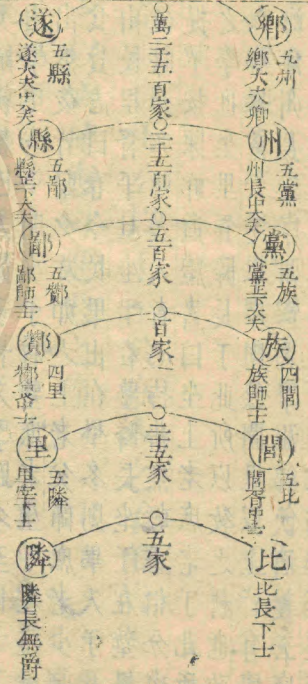 鄉
五州
鄉大夫卿
州
五黨
州長中大夫
黨
五族
黨正下大夫
族
四閭
族師上士
閭
五比
閭胥中士
比
比長下士
○萬二千五百家
○二千五百家
○五百家
○百家
○二十五家
○五家
遂
五縣
遂大夫中大夫
縣
五鄙
縣正下大夫
鄙
五酇
鄙師上士
酇
四里
里
五隣
里宰下士
隣
隣長無爵